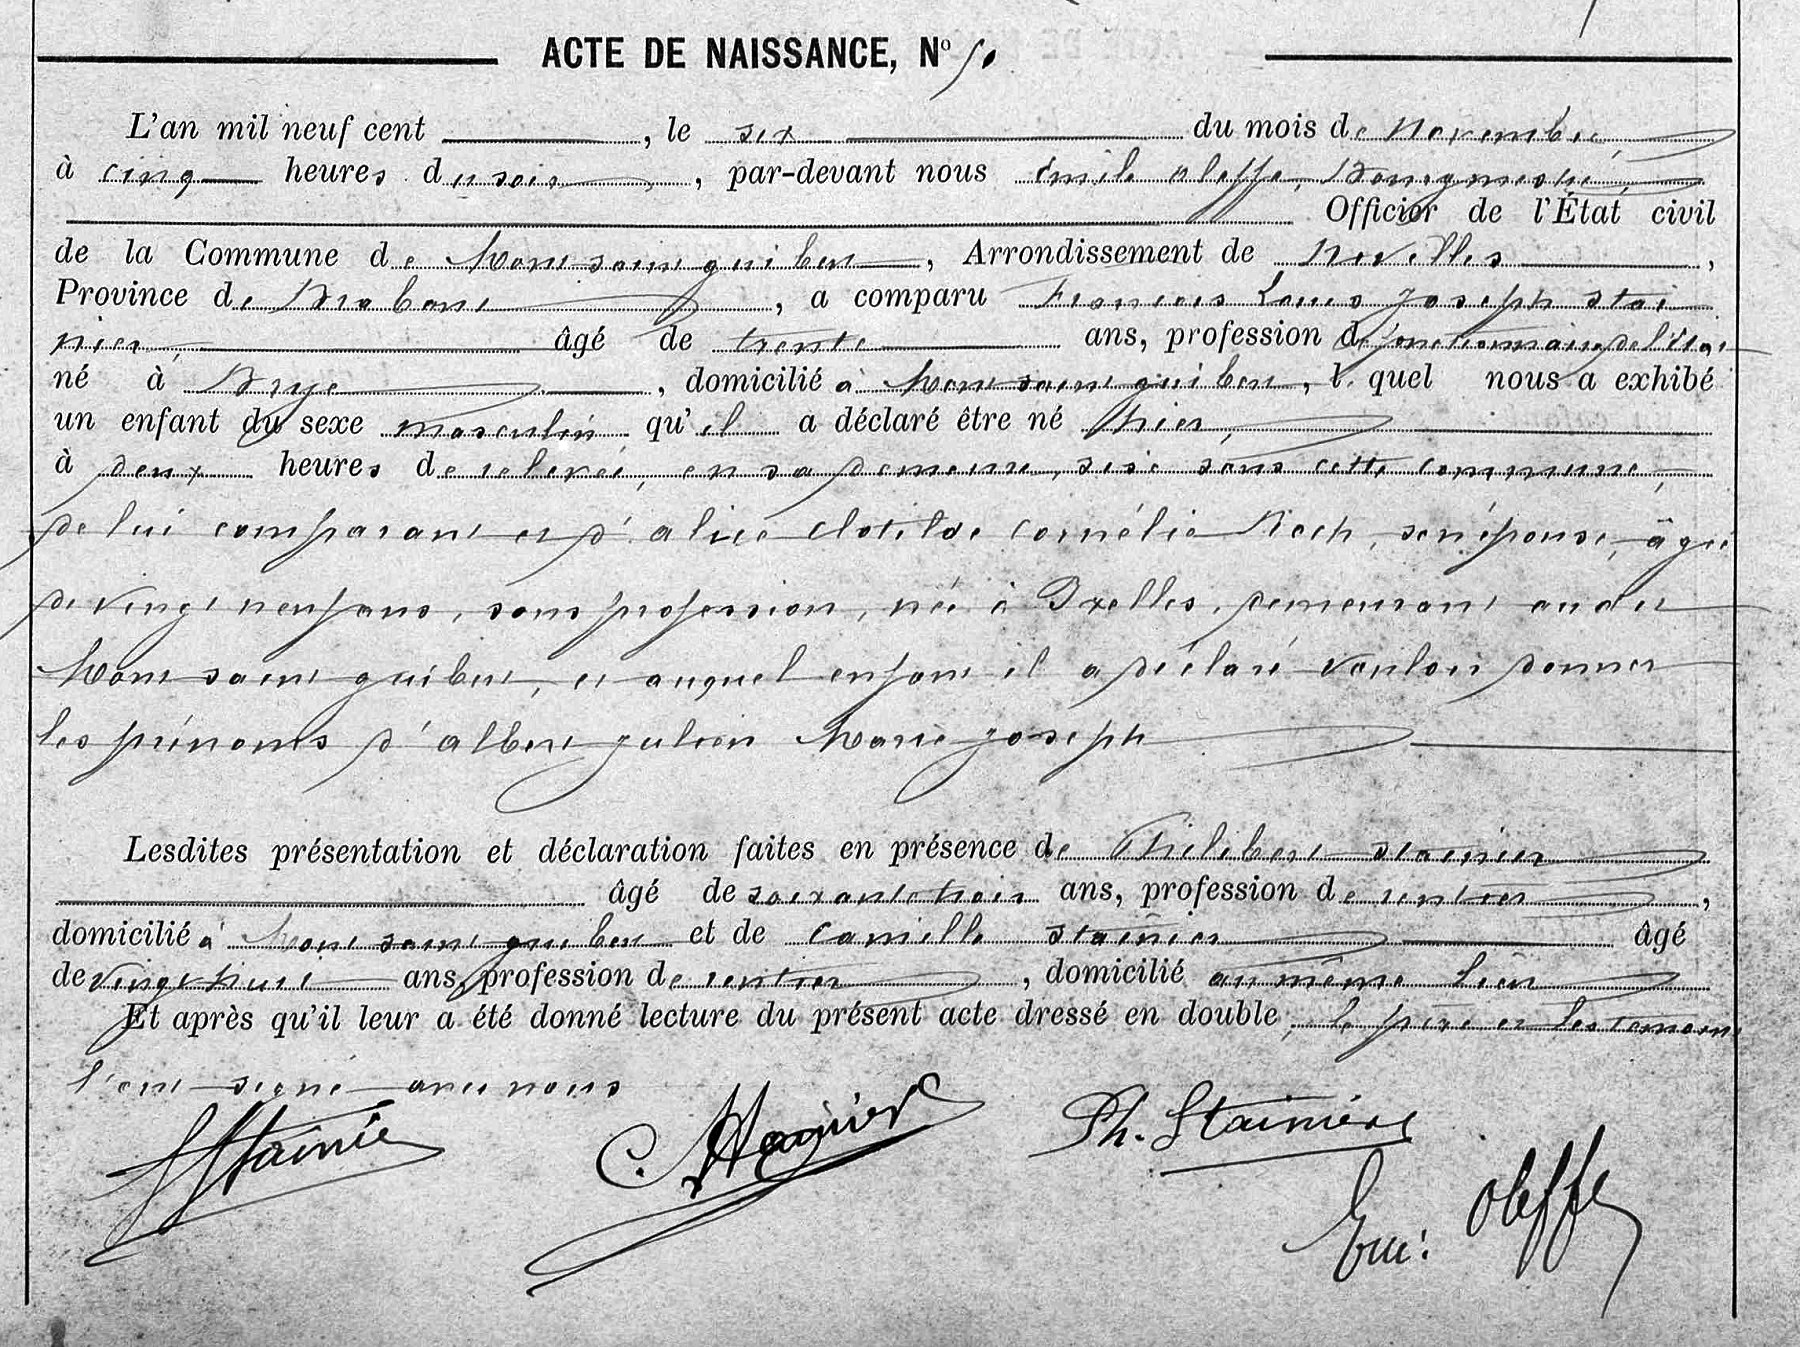 ACTE DE NAISSANCE, Nº 50
L'an mil neuf cent , le six du mois de Novembre,
à cinq heures du soir , par-devant nous Emile Oleffe, Bourgmestre,
Officier de l'État civil
de la Commune de Mont saint guibert , Arrondissement de Nivelles ,
Province de Brabant , a comparu François Louis Joseph Stai
nier, âgé de trente ans, profession de fonctionnaire de l'état
né à Brye , domicilié à Mont saint guibert, lequel nous a exhibé
un enfant du sexe masculin qu'il a déclaré être né hier,
à deux heures de relevée, en sa demeure, sise sous cette commune,
de lui comparant et d'alice Clotilde Cornélie Roch, son épouse, âgée
de vingt neuf ans, sans profession, née à Ixelles, demeurant au dit
Mont saint guibert, et auquel enfant il a déclaré vouloir donner
les prénoms d'albert julien Marie joseph
Lesdites présentation et déclaration faites en présence de Philibert stainier
âgé de soixante trois ans, profession de rentier ,
domicilié à Mont saint guibert et de Camille stainier âgé
de vingt huit ans, profession de rentier , domicilié au même lieu
Et après qu'il leur a été donné lecture du présent acte dressé en double, le père et les témoins
l'ont signé avec nous
Stainier C. Stainier Ph. Stainier
Em: Oleffe